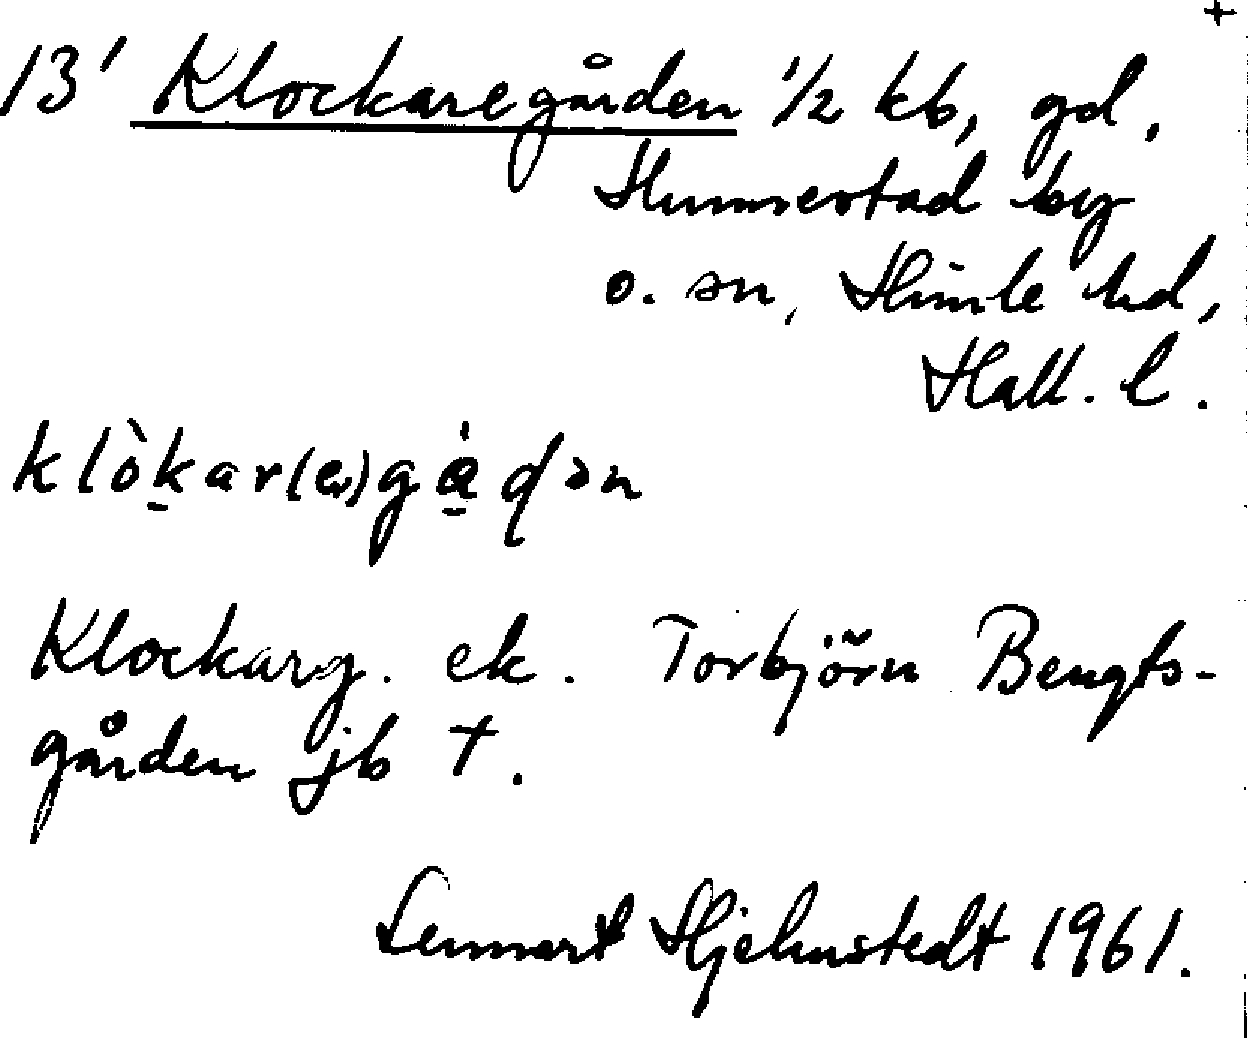 +
13' Klockaregården 1/2 kb, gd,
Hunnestad by
o. sn, Himle hd,
Hall. l.
klò̱kar(ə)gå̱̀ɖən
Klockarg. ek. Torbjörn Bengts-
gården jb †.
Lennart Hjelmstedt 1961.